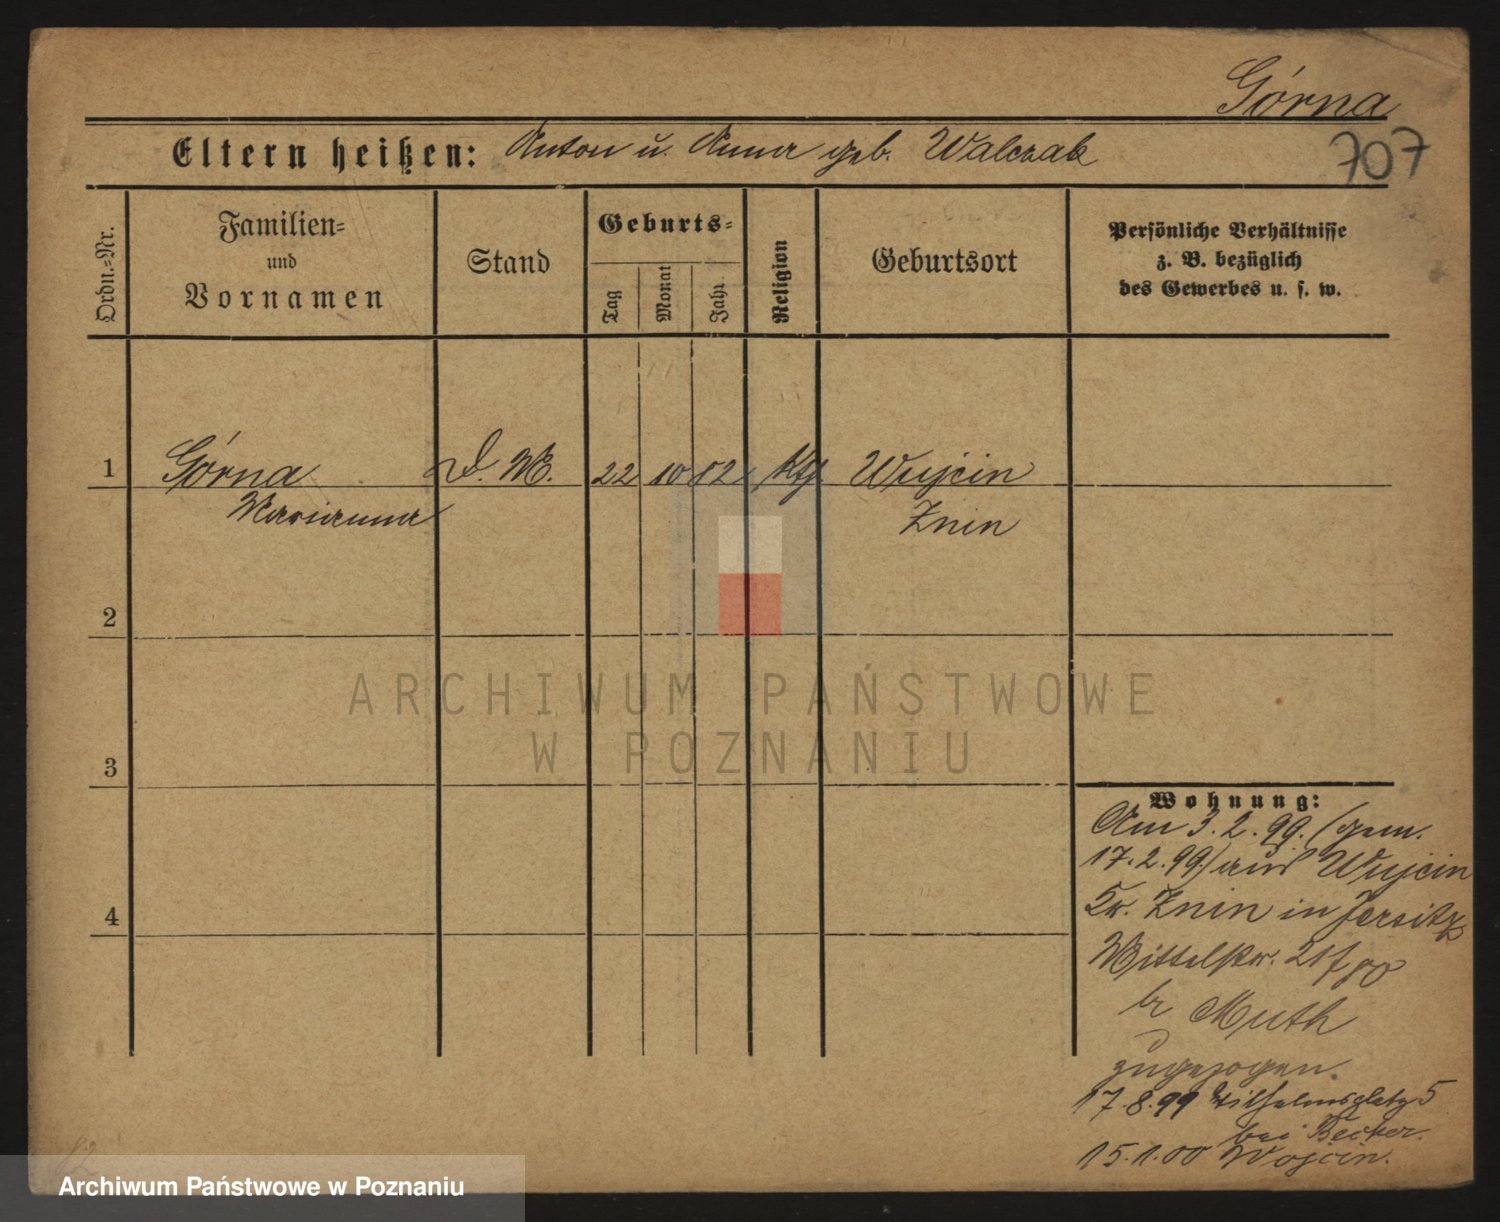 Górna
Eltern heißen: Anton u. Anna geb. Walczak
707
Ordn.-Nr.
Familien-
und
Vornamen
Stand
Geburts-
Tag
Monat
Jahr
Religion
Geburtsort
Persönliche Verhältnisse
z. B. bezüglich
des Gewerbes u. s. w.
1 Górna D. M. 22 10 82 Kth Wujcin
Marianna Znin
2
ARCHIWUM PAŃSTWOWE
W POZNANIU
3
Wohnung:
Am 3.2.99. (gem.
17.2.99) aus Wujcin
Kr. Znin in Jersitz
4
Mittelstr. 21
br Muth
zugezogen.
17.8.99 Wilhelmsplatz 5
bei Becker.
15.1.00 Wojcin.
82
Archiwum Państwowe w Poznaniu